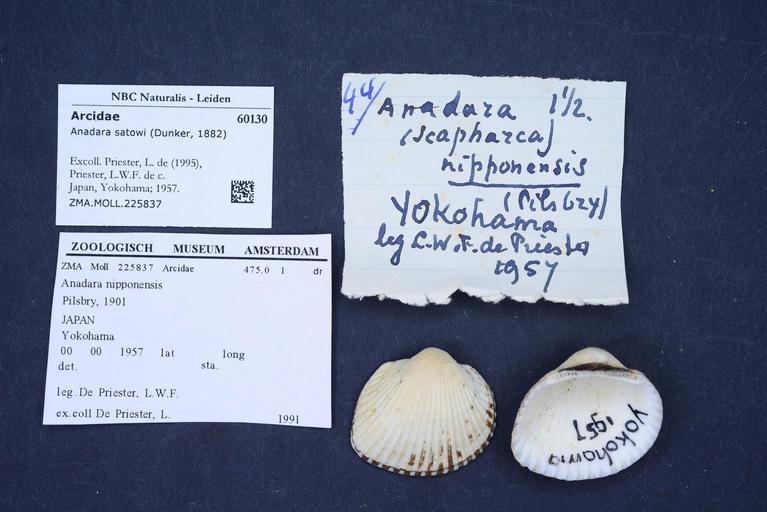 NBC Naturalis - Leiden
Arcidae 60130
Anadara satowi (Dunker, 1882)
Excoll. Priester, L. de (1995),
Priester, L.W.F. de c.
Japan, Yokohama; 1957.
ZMA.MOLL.225837
ZOOLOGISCH MUSEUM AMSTERDAM
ZMA Moll 225837 Arcidae 475.0 1 dr
Anadara nipponensis
Pilsbry, 1901
JAPAN
Yokohama
00 00 1957 lat long
det. sta.
leg. De Priester, L.W.F.
ex.coll De Priester, L. 1991
44/ Anadara 1 1/2.
(Scapharca)
nipponensis
(Pilsbry)
Yokohama
leg L.W.F. de Priester
1957
Yokohama
1957